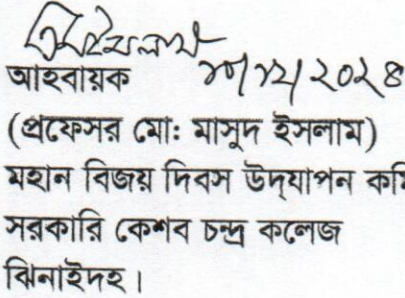 আহবায়ক
(প্রফেসর মো: মাসুদ ইসলাম)
মহান বিজয় দিবস উদ্‌যাপন কমি
সরকারি কেশব চন্দ্র কলেজ
ঝিনাইদহ।